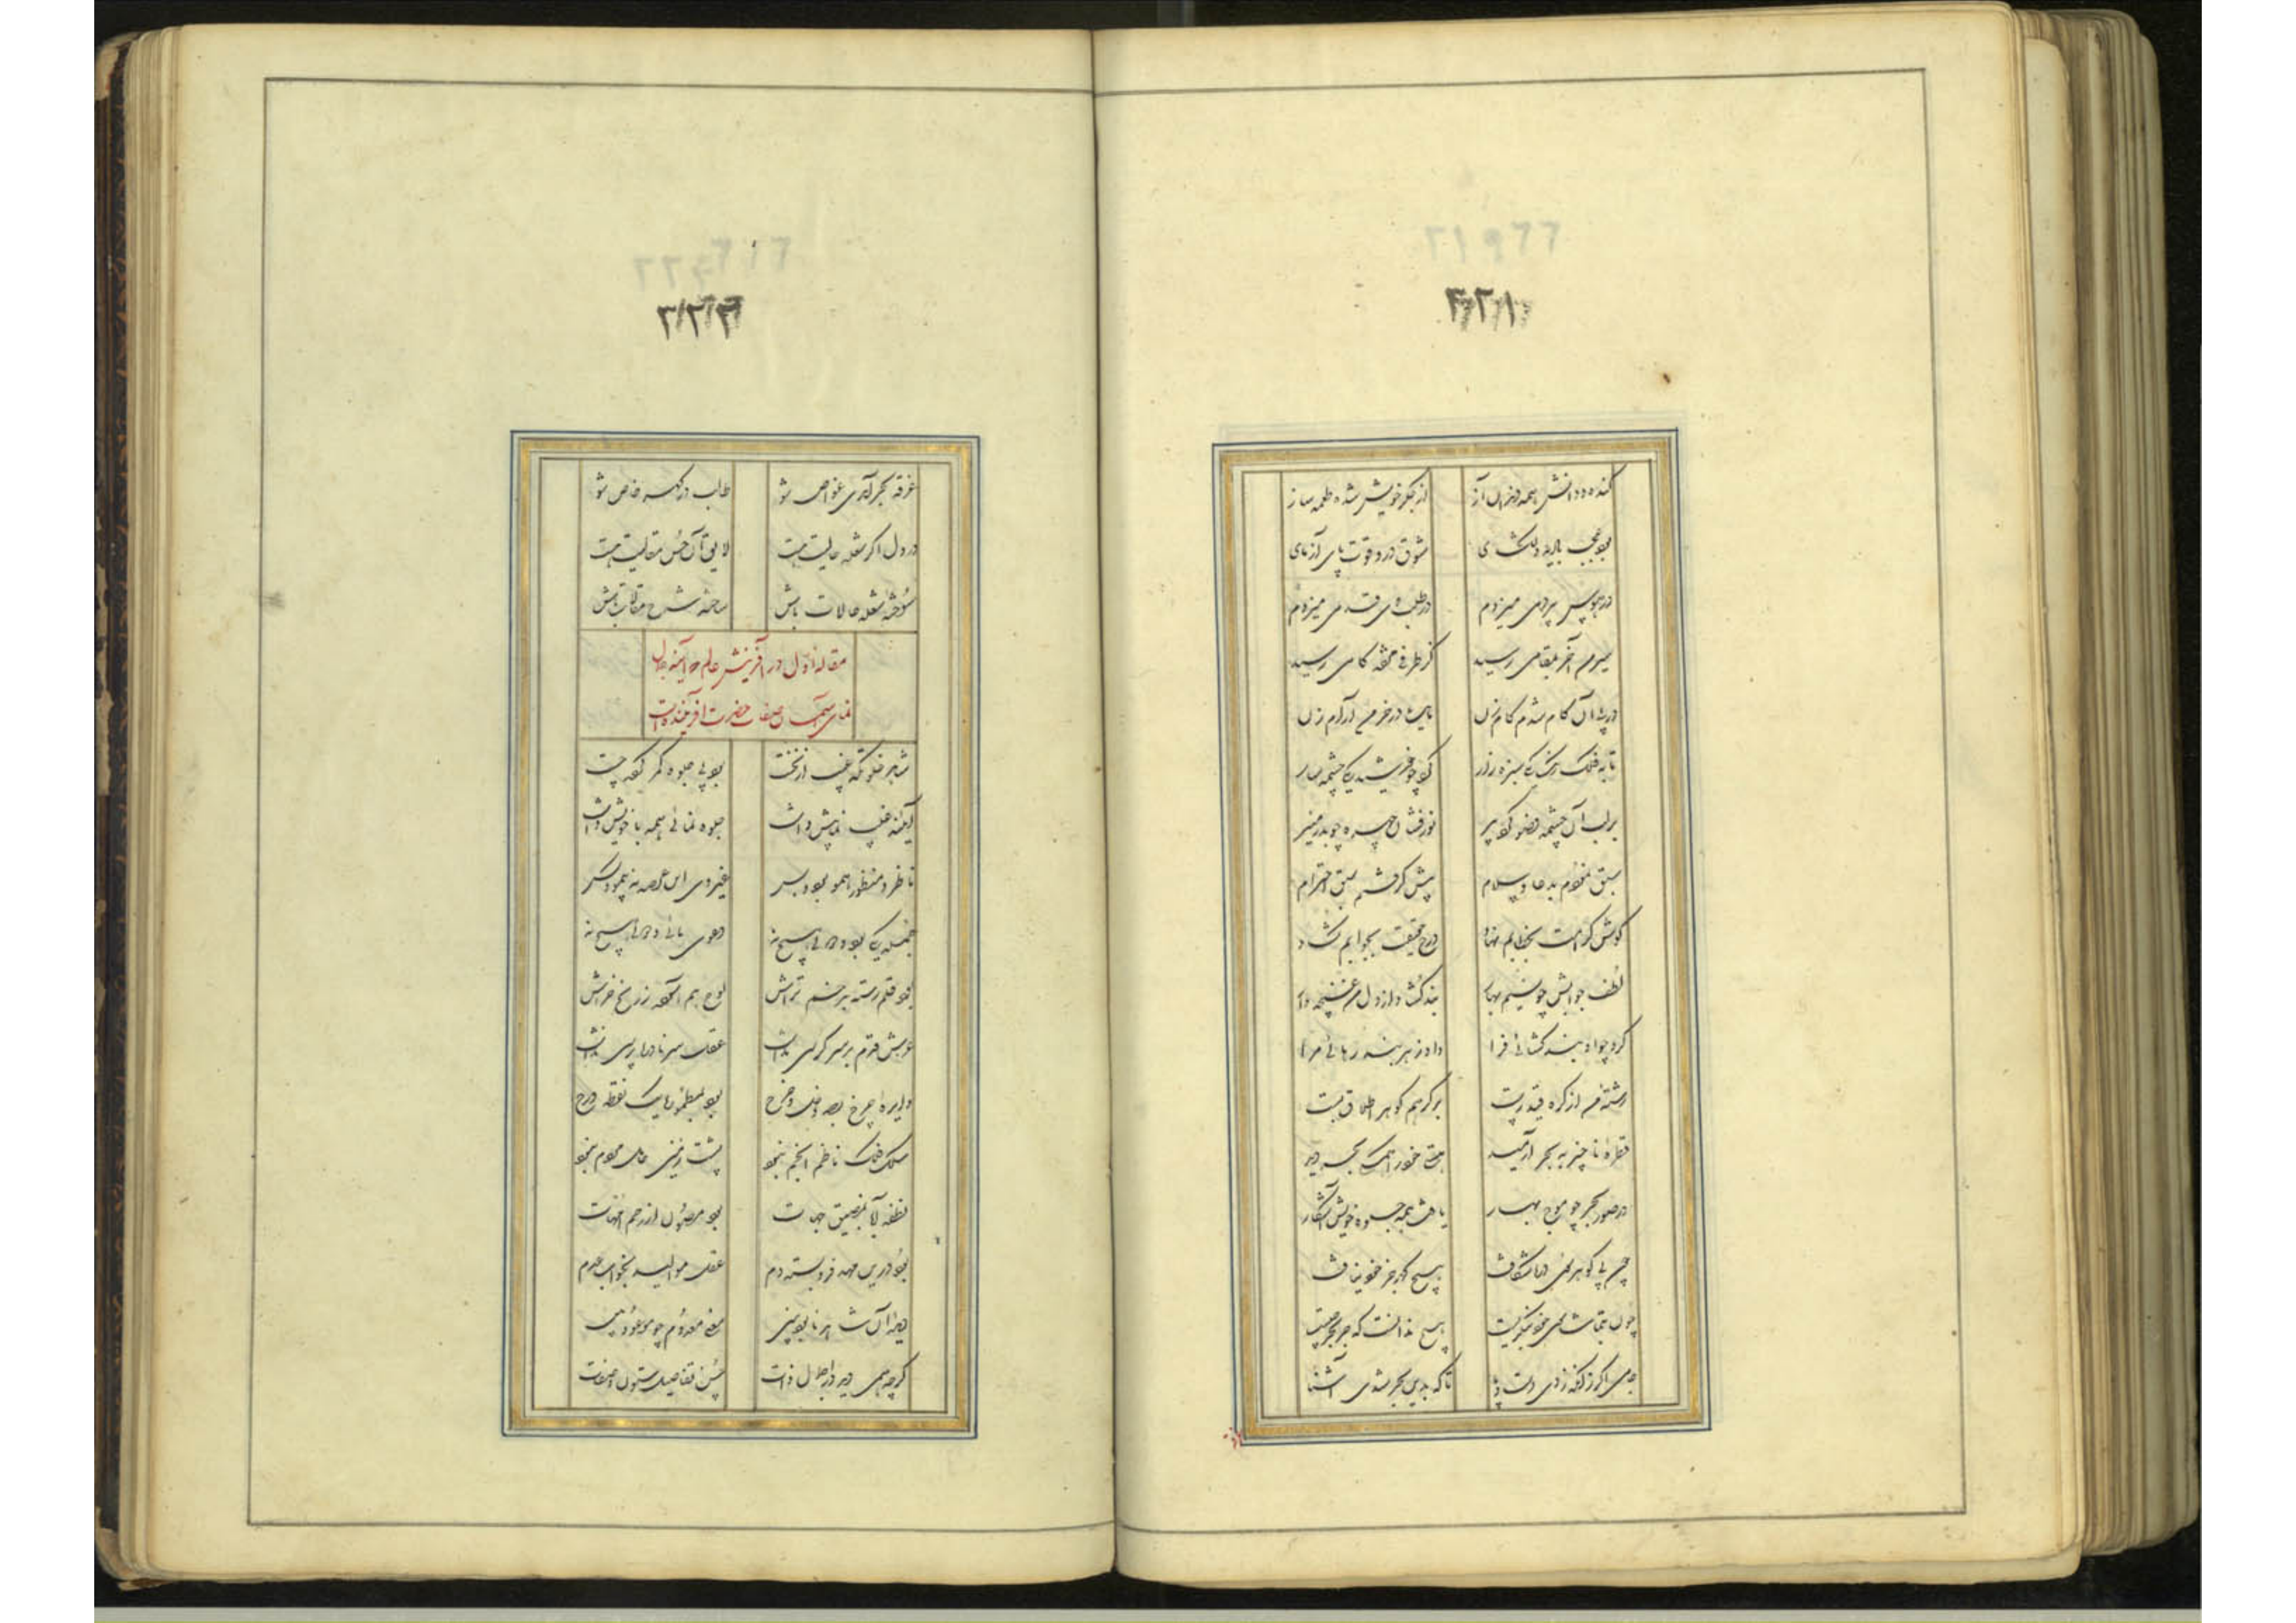 ۲۲۱
کنده ددانش همه دندان آز از جگر خویش شده طعمه ساز
شوق در و قوت پای آزمای
میزدم در طلبش قدمی میزدم
سیرم آخر بمقامی رسید کز طرفی کامی رسید
در پی آن کام شدم کام زن
تا به فلک رنگ یکی سبزه زار کرد چو خورشید یکی چشمه سار
بر لب آن چشمه خضر کرد پیر نور فشان چهره چو بدر منیر
سبق نمودم بدعا و سلام پیش گرفتم سبق احترام
گوش کرامت بخطابم نهاد درج حقیقت بجوابم گشاد
لطف جوابش چو نسیم بهار بند گشاد از دل من غنچه وار
کرد چو او بند گشائی فرا داد ز هر بند رهائی مرا
رشته من از گره قید رست بر گرهم گوهر اطلاق بست
قطره ناچیز به بحر آرمید هستی خود را همگی بحر دید
در صور بحر چو موج بهار یافت همه جلوه خویش آشکار
چون پی گوهر همی دریا شکافت هیچ گهر جز خود نیافت
چون بتماشای خود بنگریست هیچ ندانست که جز بحر چیست
جامی اگر زنده زدی دست و پا تا که بدین بحر شدی آشنا
۲۲۲
غرقه بحر آمدی غواص شو طالب در گهر خاص شو
در دل اگر شعله حالیت هست لایق آن حسن مقالیت هست
سوخته شعله حالات باش ساخته شرح مقالات باش
مقاله اول در آفرینش عالم که آینه جمال
نمای اسماء و صفات حضرت آفریننده است
شاهد خلوتگه غیب از نخست بود پی جلوه کمر کرده چست
آینه غیب نما پیش داشت جلوه نمائی همه با خویش داشت
ناظر و منظور همو بود و بس غیر وی این عرصه نه پیمود کس
جمله یکی بود و دوئی هیچ نه دعوی مائی و توئی هیچ نه
بود قلم رسته ز زخم تراش لوح هم آسوده ز رنج خراش
عرش قدم بر سر کرسی نداشت عقل سر نادره پرسی نداشت
دایره چرخ بود و فلک و برج بود بهم نا یک نقطه درج
سلک فلک ناظم انجم نبود پشت زمین حامل مردم نبود
نطفه آبا بمضیق جهات بود مصون از رحم امهات
بود درین مهد فرو بسته دم طفل موالید بخواب عدم
دیده آن شاهد نابود بین معنی معدوم چو موجود بین
گرچه همی دید در اجمال ذات حسن تفاصیل شئون و صفات